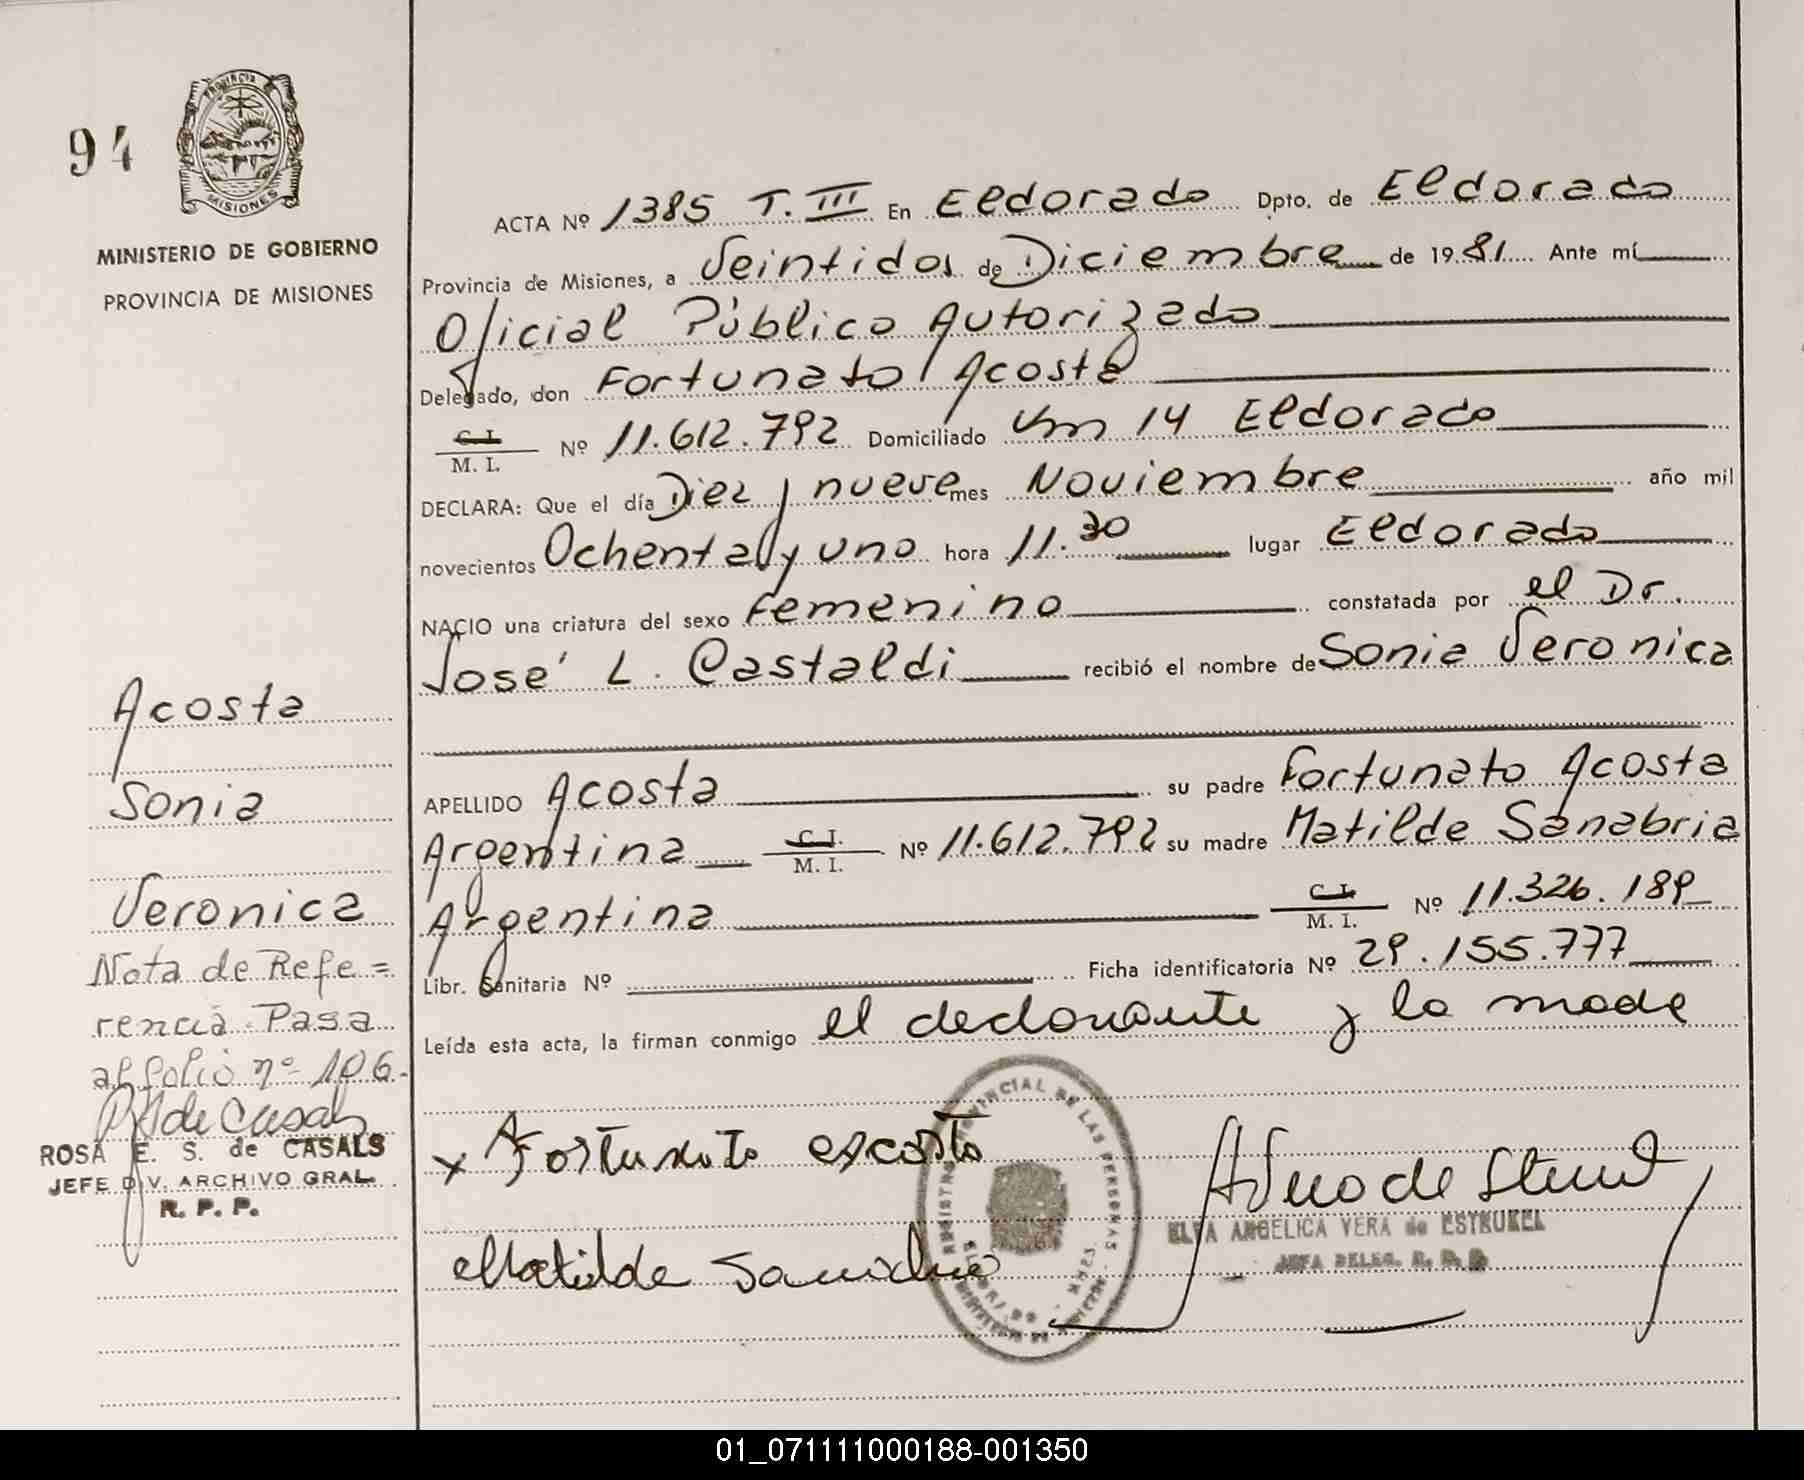 94
PROVINCIA
MISIONES
MINISTERIO DE GOBIERNO
PROVINCIA DE MISIONES
ACTA Nº 1385 T. III En Eldorado Dpto. de Eldorado
Provincia de Misiones, a Veintidos de Diciembre de 1981 Ante mí
Oficial Público Autorizado
Delegado, don Fortunato Acosta
C. I.
M. I. Nº 11.612.792 Domiciliado Km 14 Eldorado
DECLARA: Que el día Diez y nueve mes Noviembre año mil
novecientos Ochenta y uno hora 11.30 lugar Eldorado
NACIO una criatura del sexo Femenino constatada por el Dr.
José L. Castaldi recibió el nombre de Sonia Veronica
APELLIDO Acosta su padre Fortunato Acosta
Argentina C. I. M. I. Nº 11.612.792 su madre Matilde Sanabria
Argentina C. I. M. I. Nº 11.326.189
Libr. Sanitaria Nº Ficha identificatoria Nº 29.155.777
Leída esta acta, la firman conmigo el declarante y la madre
x Fortunato acosta
Matilde Sanabria
ELVA ANGELICA VERA de ESTRUKEL
JEFA DELEG. R. P. P.
Acosta
Sonia
Veronica
Nota de Refe=
rencia Pasa
al folio nº 106.
ROSA E. S. de CASALS
JEFE DIV. ARCHIVO GRAL.
R. P. P.
01_071111000188-001350